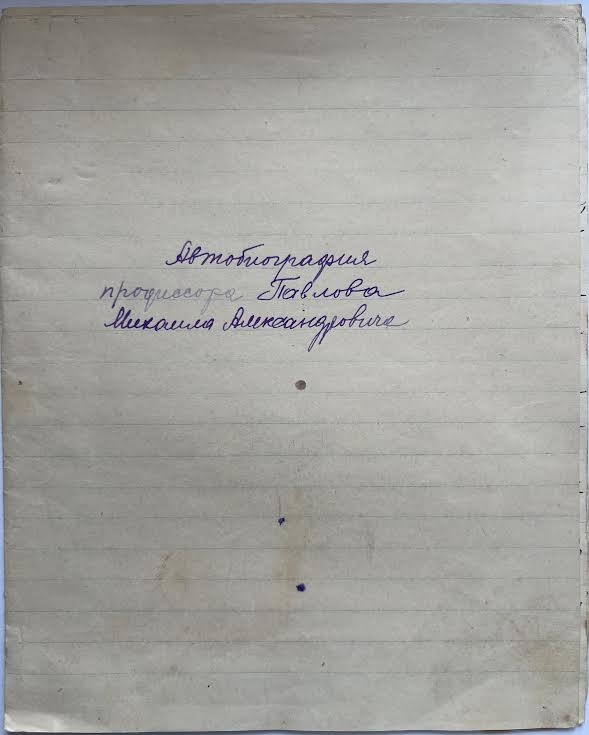 Автобиография
профессора Павлова
Михаила Александровича